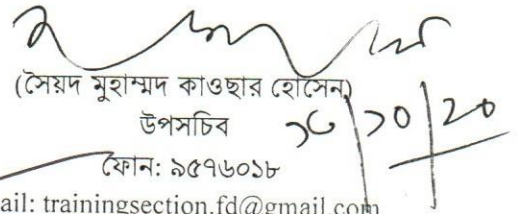 (সৈয়দ মুহাম্মদ কাওছার হোসেন)
উপসচিব
ফোন: ৯৫৭৬০১৮
ail: trainingsection.fd@gmail.com